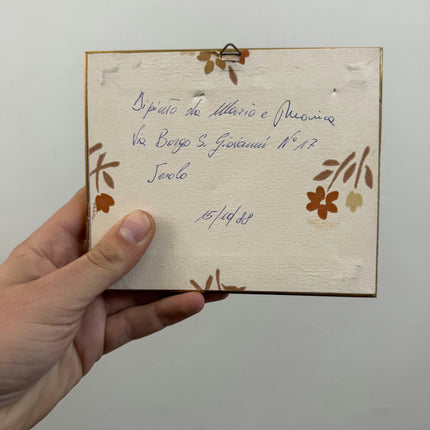 Dipinto da Mario e Monica
Via Borgo S. Giovanni N° 17
Jesolo
15/10/88